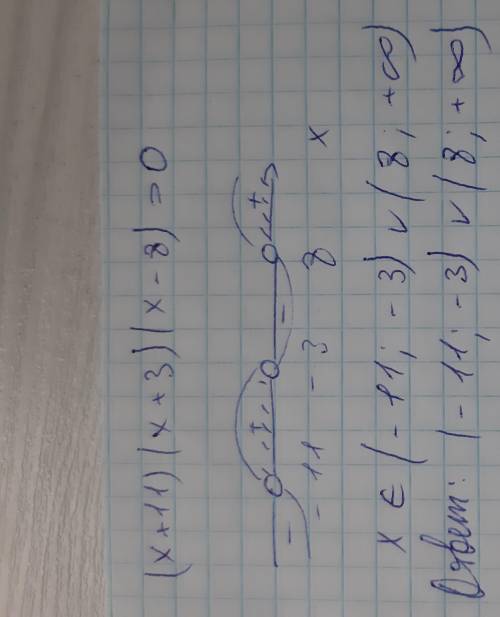 (x+11)(x+3)(x-8)=0
- + - +
-11 -3 8 x
x ∈ (-11; -3) ∨ (8; +∞)
Ответ: (-11; -3) ∨ (8; +∞)